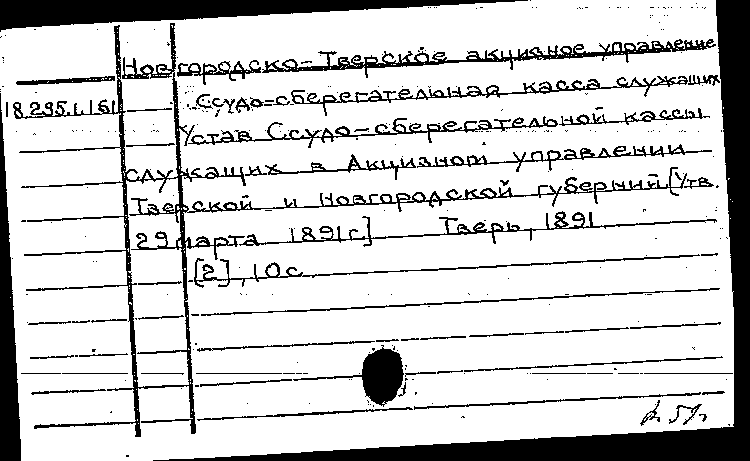 Новгородско-Тверское акцизное управление
18.295.1.161 Ссудо-сберегательная касса служащих
Устав Ссудо-сберегательной кассы
служащих в Акцизном управлении
Тверской и Новгородской губерний. [Утв.
29 марта 1891 г.] Тверь, 1891
[2], 10 с.